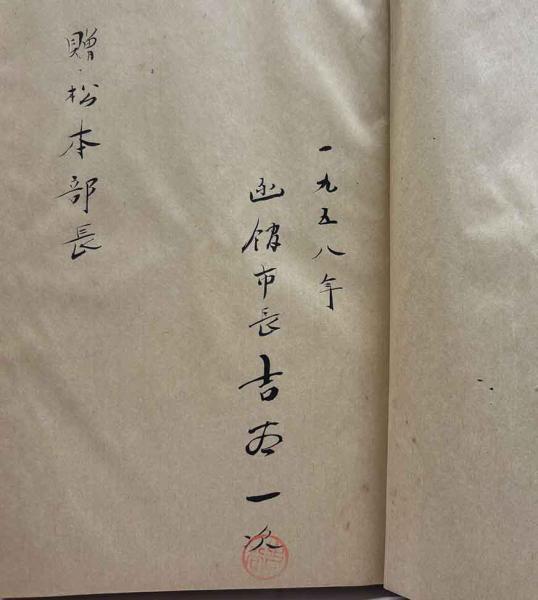 一九五八年
函館市長吉谷一次
贈松本部長